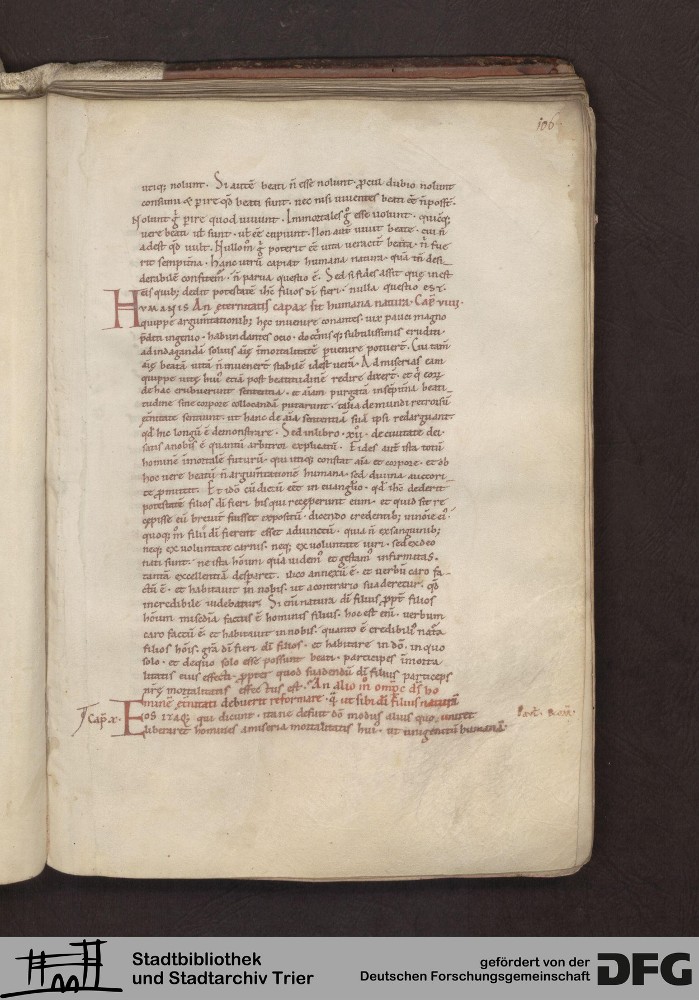 106
utiq; nolunt. Si autē beati ñ esse nolunt. ꝓcul dubio nolunt
consumi & ꝑire qđ beati sunt. nec nisi uiuentes beati eē ñ poss̄t.
Nolunt g̊ ꝑire quod uiuunt. Immortales g̊ esse uolunt.
uere beati ul sunt. ul eē cupiunt. Non aut uiuit beate. cui ñ
adest qđ uult. Nullom̊ g̊ poterit eē uita ueracit̄ beata. ñ fue
rit sempit̄na. Hanc utrū capiat humana natura. quā tñ desi-
derabilē confitem̄. ñ parua questio ē. Sed si fides assit que inest
eis quib; dedit potestatē ihc̄ filios dī fieri. nulla questio est.
HUMANIS An eternitatis capax sit humana natura. Cap̄ viiii.
quippe argum̄tationib; hęc inuenire conantes. uix pauci magno
p̄diti ingenio. habundantes ocio. doct̄nisq; subtilissimis eruditi.
ad indagandā solius aīę īmortalitatē ꝑuenire potuer̄t. Cui tam̄
aīę beatā uitā ñ inuener̄t stabilē idest uerā. Ad miserias eam
quippe uitę hui' etiā post beatitudinē redire dixer̄t. et q̄ eorꝝ
de hac erubuerunt sententia. et aīam purgatā in sēpit̄na beati-
tudine sine corpore collocandā putarunt. talia de mundi retrorsū
et̄nitate sentiunt. ut hanc de aīa sententiā suā ipsi redarguant.
qđ hic longū ē demonstrare. Sed in libro .xii. de ciuitate dei.
satis a nobis ē quantū arbitror explicatū. Fides aut ista totū
hominē īmortalē futurū. qui utiq; constat aīa et corpore. et ob
hoc uere beatū ñ argum̄tatione humana. sed diuina auctori-
te ꝓmittit. Et ido cū dictū eēt in euangl̄io. qđ ihc̄ dederit
potestatē filios dī fieri his qui receperunt eum. et quid sit re
cepisse eū breuit̄ fuisset expositū. dicendo credentib; in noīe ei'.
quoq; m̊ filii dī fierent esset adiunctū. quia ñ ex sanguinib;
neq; ex uoluntate carnis. neq; ex uoluntate uiri. sed ex deo
nati sunt. ne ista hōium quā uidem̄ et gestam̄ infirmitas.
tantā excellentiā desꝑaret. ilico annexū ē. et uerbū caro fa-
ctū ē. et habitauit in nobis. ut a contrario suaderetur. qđ
incredibile uidebatur. Si enī natura dī filius ꝓpt̄ filios
hōium misc̄dia factus ē hominis filius. hoc est enī. uerbum
caro factū ē. et habitauit in nobis. quanto ē credibili' nat̄a
filios hōīs. grā dī fieri dī filios. et habitare in dō. in quo
solo. et de quo solo esse possunt beati. participes īmorta
litatis eius effecti. ꝓpter quod suadendū dī filius particeps
nr̄ę mortalitatis effectus est. An alio m̊ omp̄c ds̄ ho
minē et̄nitati debuerit reformare. q̄ ut sibi dī filius naturā
Cap̄. x. EOS ITAQ; qui dicunt. itane defuit dō modus alius quo
liberaret homines a miseria mortalitatis hui'. ut unigenitū
Stadtbibliothek
und Stadtarchiv Trier
gefördert von der
Deutschen Forschungsgemeinschaft
DFG